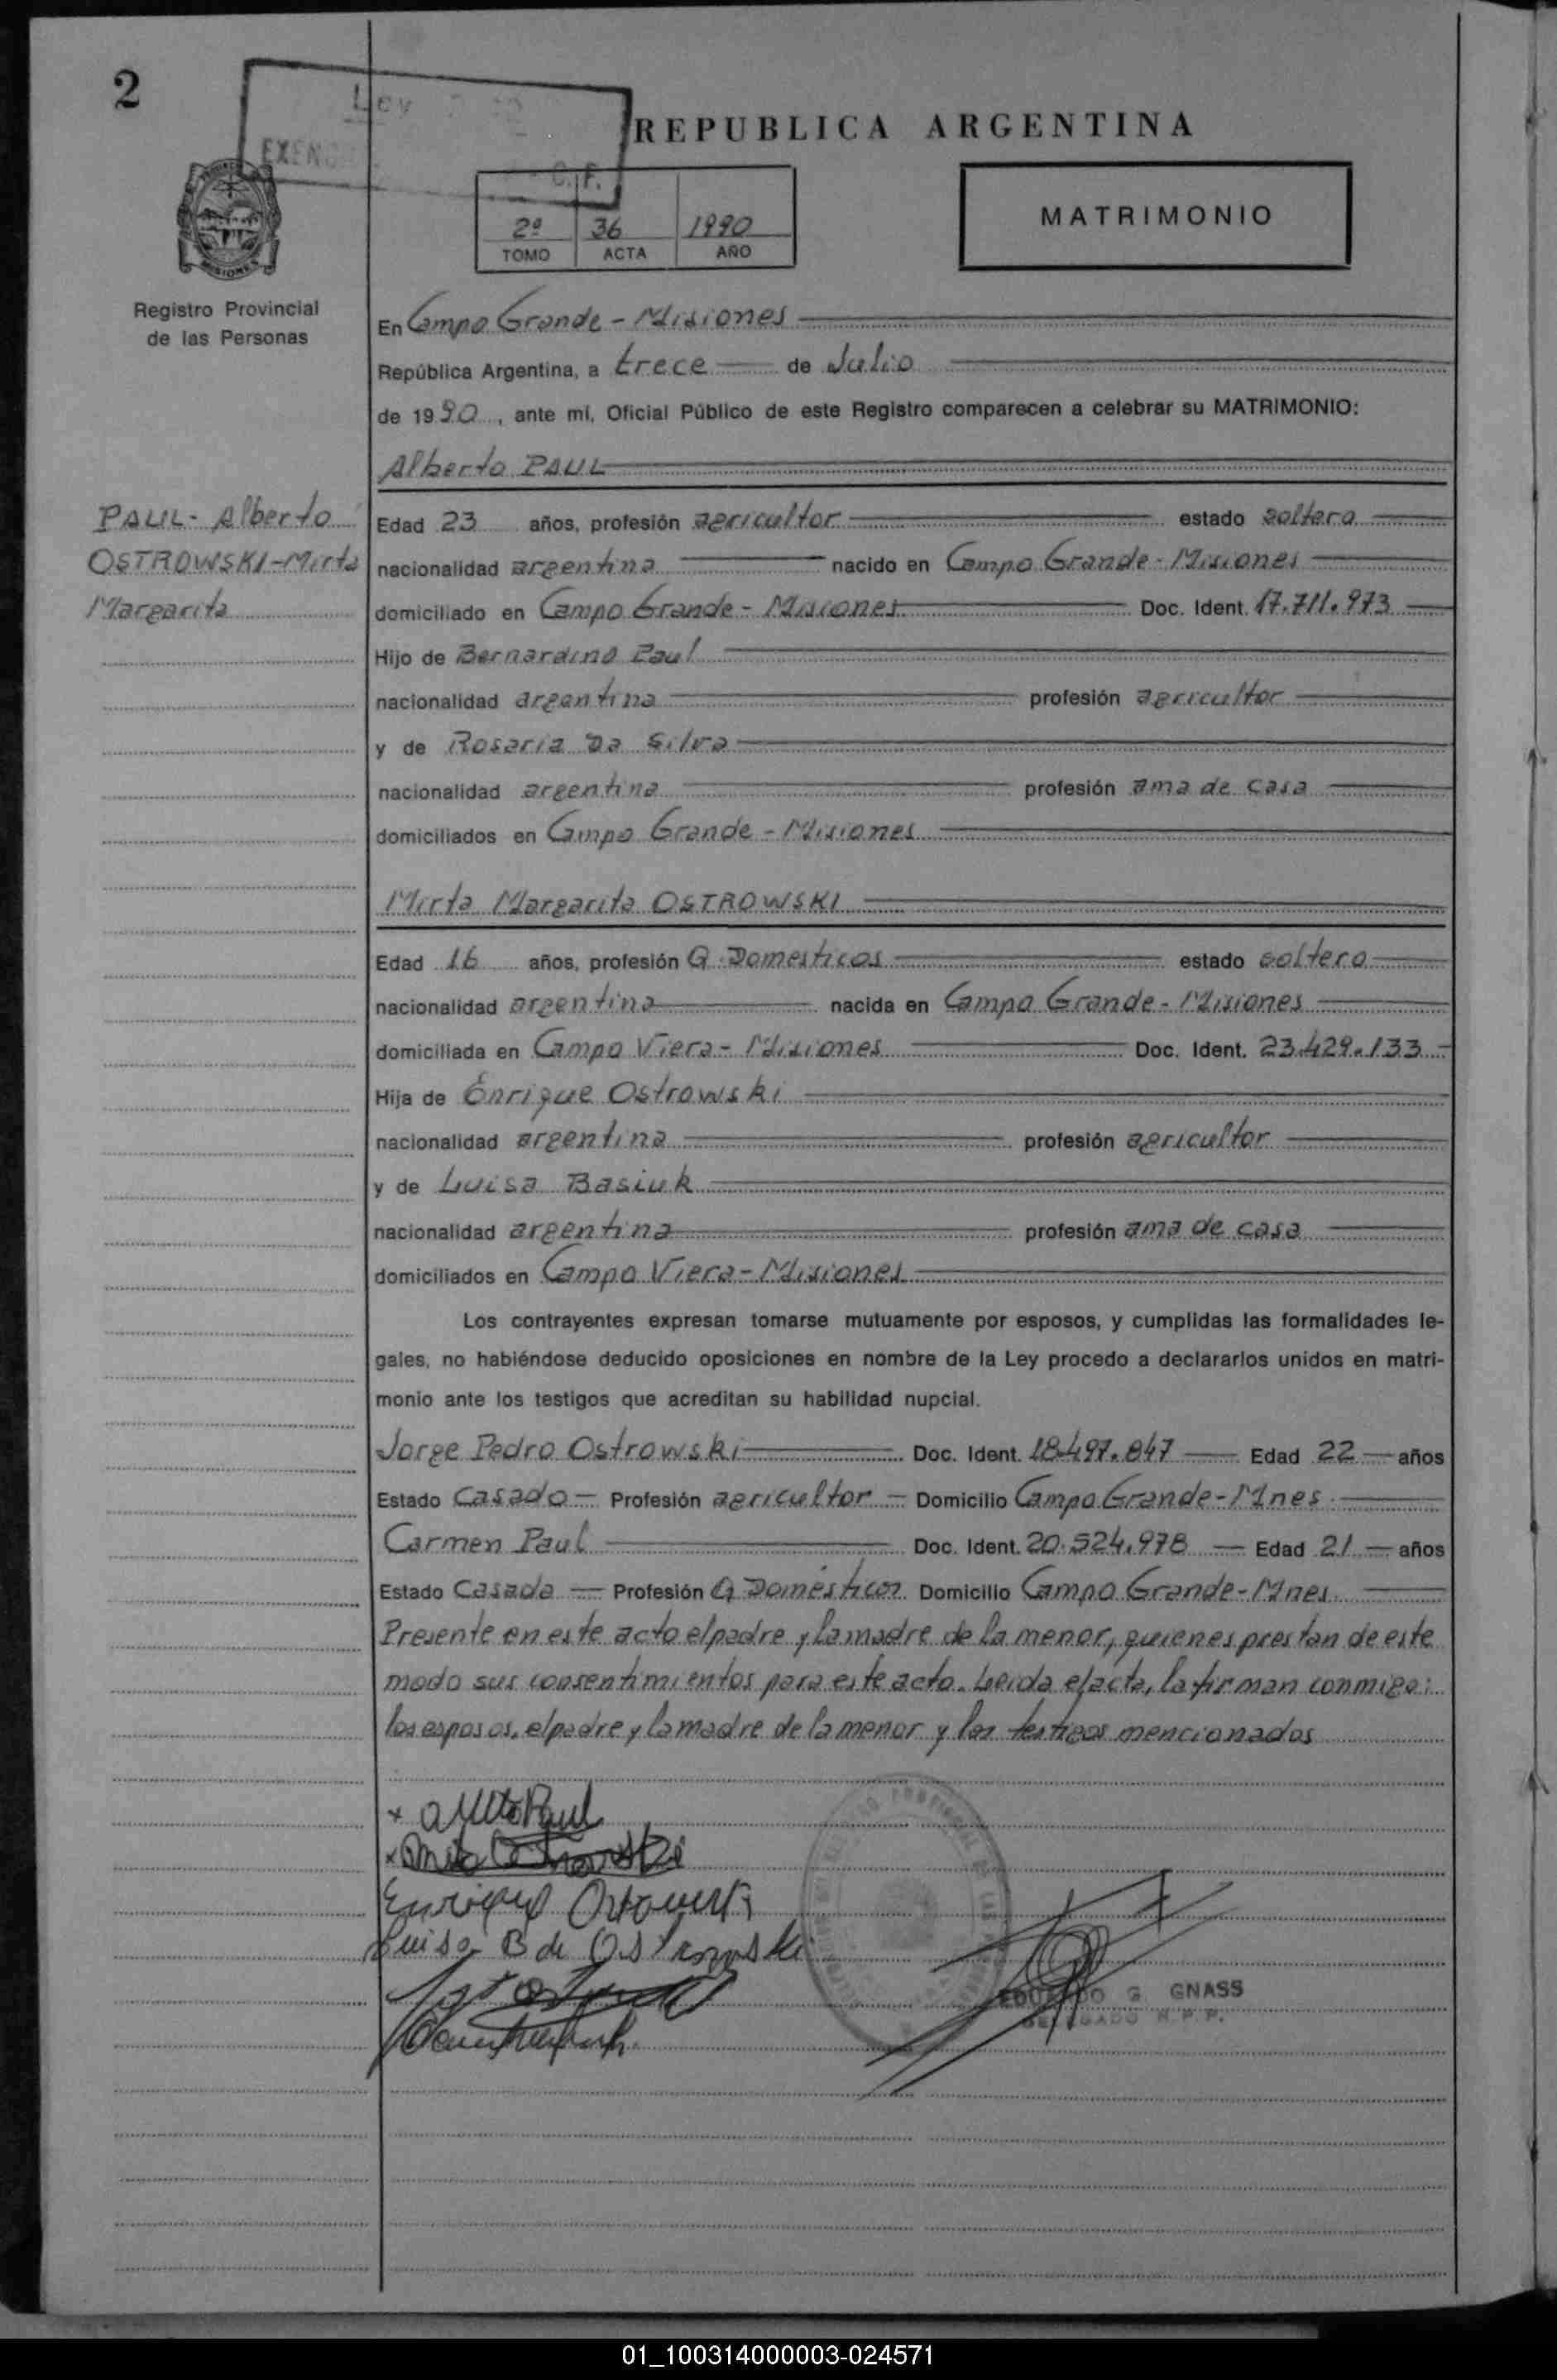 2
Ley
EXENC
C. F.
REPUBLICA ARGENTINA
MATRIMONIO
2º 36 1990
TOMO ACTA AÑO
MISIONES
Registro Provincial
de las Personas
En Campo Grande - Misiones
República Argentina, a trece de Julio
de 1990, ante mí, Oficial Público de este Registro comparecen a celebrar su MATRIMONIO:
Alberto PAUL
PAUL - Alberto
OSTROWSKI - Mirta
Margarita
Edad 23 años, profesión agricultor estado soltero
nacionalidad argentina nacido en Campo Grande - Misiones
domiciliado en Campo Grande - Misiones Doc. Ident. 17.711.973
Hijo de Bernardino Paul
nacionalidad argentina profesión agricultor
y de Rosaria Da Silva
nacionalidad argentina profesión ama de casa
domiciliados en Campo Grande - Misiones
Mirta Margarita OSTROWSKI
Edad 16 años, profesión Q. Domesticos estado soltera
nacionalidad argentina nacida en Campo Grande - Misiones
domiciliada en Campo Viera - Misiones Doc. Ident. 23.429.133
Hija de Enrique Ostrowski
nacionalidad argentina profesión agricultor
y de Luisa Basiuk
nacionalidad argentina profesión ama de casa
domiciliados en Campo Viera - Misiones
Los contrayentes expresan tomarse mutuamente por esposos, y cumplidas las formalidades le-
gales, no habiéndose deducido oposiciones en nombre de la Ley procedo a declararlos unidos en matri-
monio ante los testigos que acreditan su habilidad nupcial.
Jorge Pedro Ostrowski Doc. Ident. 18.497.847 Edad 22 años
Estado Casado Profesión agricultor Domicilio Campo Grande - Mnes.
Carmen Paul Doc. Ident. 20.524.978 Edad 21 años
Estado Casada Profesión Q Domésticos Domicilio Campo Grande - Mnes.
Presente en este acto el padre y la madre de la menor, quienes prestan de este
modo sus consentimientos para este acto. Leida el acta, la firman conmigo:
los esposos, el padre y la madre de la menor y los testigos mencionados
Paul
Enrique
Luisa B de Ostrowski
EDUARDO G. GNASS
DELEGADO R. P. P.
01_100314000003-024571